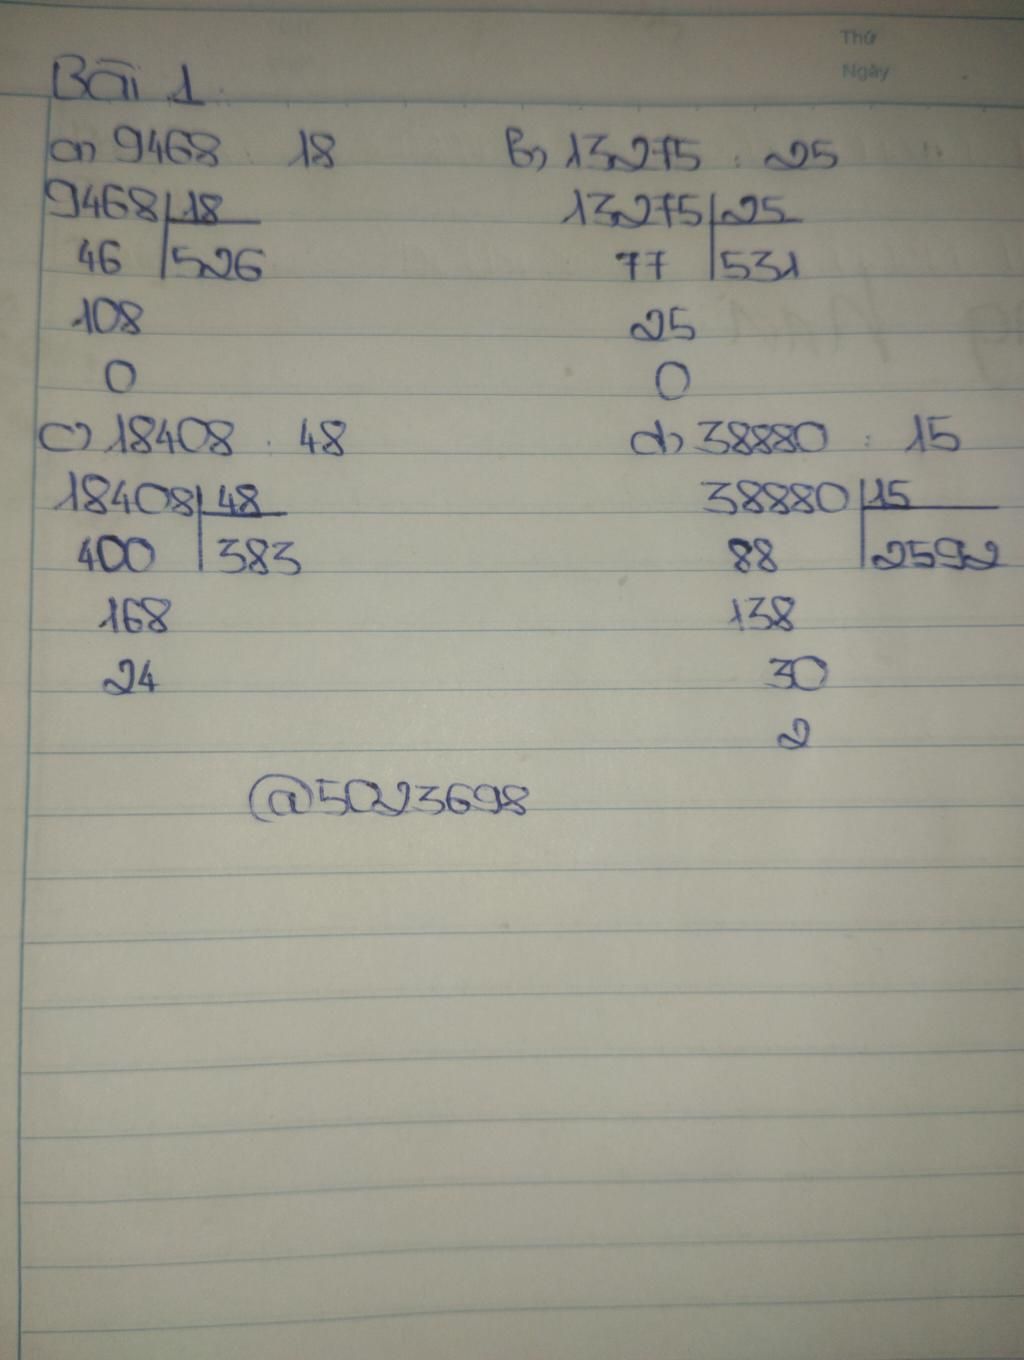 Thứ
Ngày
Bài 1
a) 9468 : 18
b) 13275 : 25
9468 18
46 526
108
0
13275 25
77 531
25
0
c) 18408 : 48
d) 38880 : 15
18408 48
400 383
168
24
38880 15
88 2592
138
30
2
@5023698